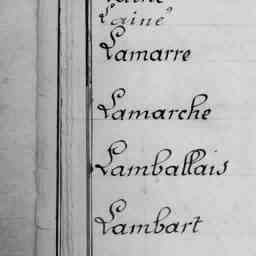 Lainé
Lamarre
Lamarche
Lamballais
Lambart